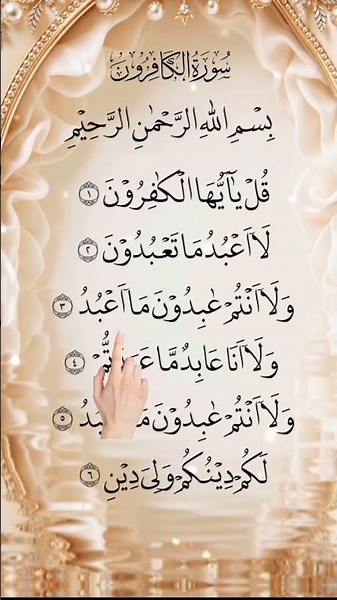 سُورَةُ الْكَافِرُونَ
بِسْمِ اللهِ الرَّحْمٰنِ الرَّحِيْمِ
قُلْ يٰٓاَيُّهَا الْكٰفِرُوْنَ ۝١
لَآ اَعْبُدُ مَا تَعْبُدُوْنَ ۝٢
وَلَآ اَنْتُمْ عٰبِدُوْنَ مَآ اَعْبُدُ ۝٣
وَلَآ اَنَا عَابِدٌ مَّا ۝٤
وَلَآ اَنْتُمْ عٰبِدُوْنَ ۝٥
لَكُمْ دِيْنُكُمْ وَلِيَ دِيْنِ ۝٦